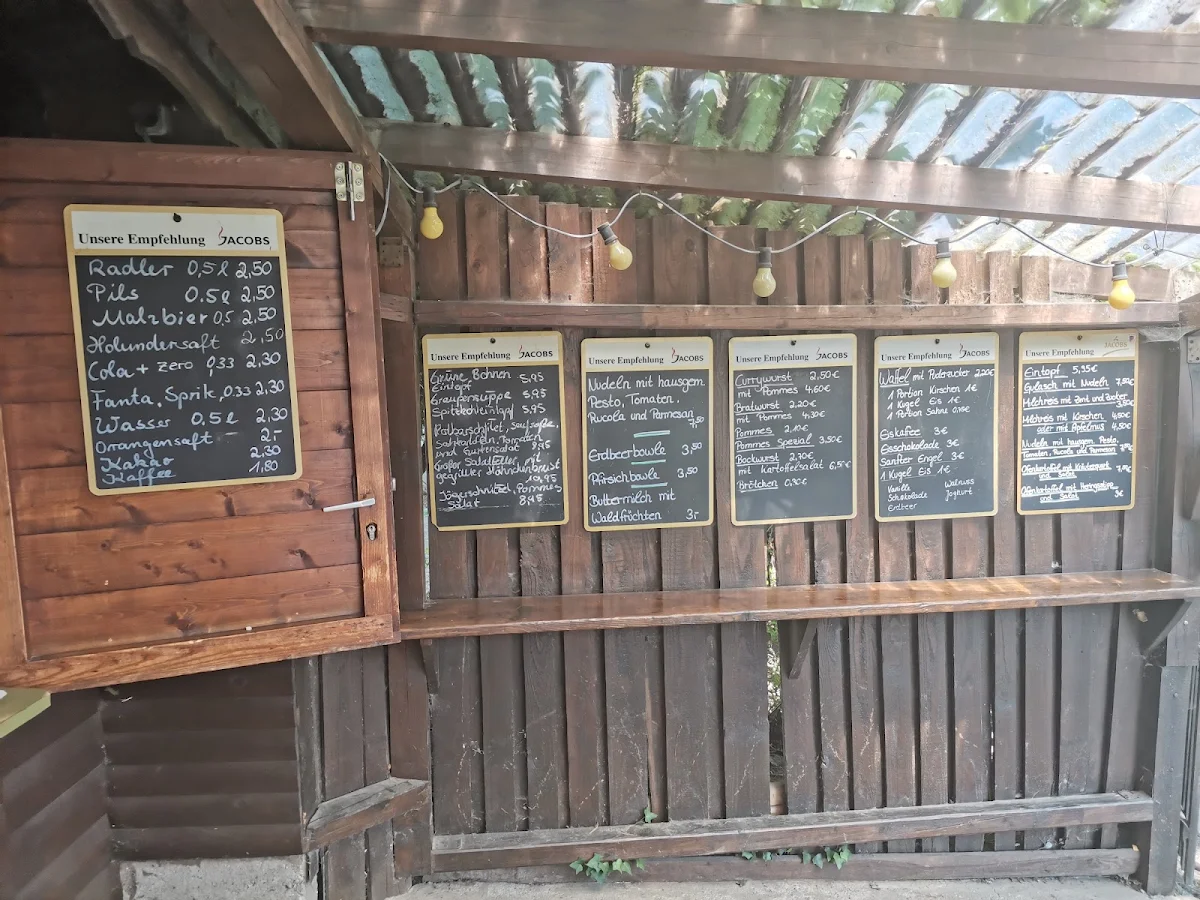 Unsere Empfehlung JACOBS
Radler 0,5 l 2,50
Pils 0.5 l 2,50
Malzbier 0,5 2,50
Holundersaft 2,50
Cola + zero 0,33 2,30
Fanta, Sprite, 0,33 2,30
Wasser 0.5 l 2,30
Orangensaft 2,-
Kakao 2,30
Kaffee 1,80
Unsere Empfehlung JACOBS
Grüne Bohnen
Eintopf 5,95
Graupensuppe 5,95
Spitzkohleintopf 5,95
und Gurkensalat 9,95
Großer Salatteller mit
gegrillter Hähnchenbrust
10,95
Jägerschnitzel, Pommes
Salat 8,95
Unsere Empfehlung JACOBS
Nudeln mit hausgem.
Pesto, Tomaten,
Rucola und Parmesan
7,50
Erdbeerbowle 3,50
Pfirsichbowle 3,50
Buttermilch mit
Waldfrüchten 3,-
Unsere Empfehlung JACOBS
Currywurst 2,50€
mit Pommes 4,60€
Bratwurst 2,20€
mit Pommes 4,30€
Pommes 2,10€
Pommes Spezial 3,50€
Bockwurst 2,30€
mit Kartoffelsalat 6,5€
Brötchen 0,30€
Unsere Empfehlung JACOBS
Waffel mit Puderzucker 2,20€
1 Portion Kirschen 1€
1 Kugel Eis 1€
1 Portion Sahne
Eiskaffee 3€
Eisschokolade 3€
Sanfter Engel 3€
1 Kugel Eis 1€
Vanille Walnuss
Schokolade Joghurt
Erdbeer
Unsere Empfehlung JACOBS
Eintopf 5,35€
Gulasch mit Nudeln 7,50€
Milchreis mit Zimt und Zucker
3,50€
Milchreis mit Kirschen 4,50€
oder mit Apfelmus 4,50€
Nudeln mit hausgem. Pesto,
Tomaten, Rucola und Parmesan
Ofenkartoffel mit Kräuterquark
und Salat
Ofenkartoffel mit
und Salat